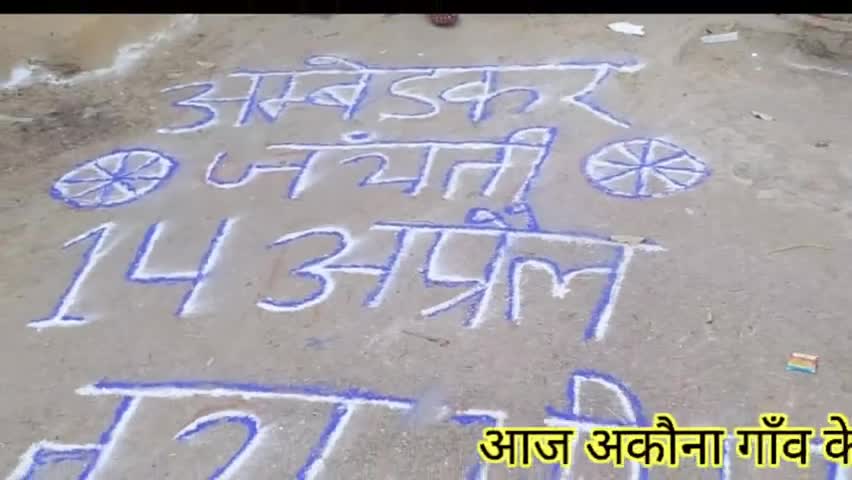 अम्बेडकर
जंयती
14 अप्रैल
आज अकौना गाँव के